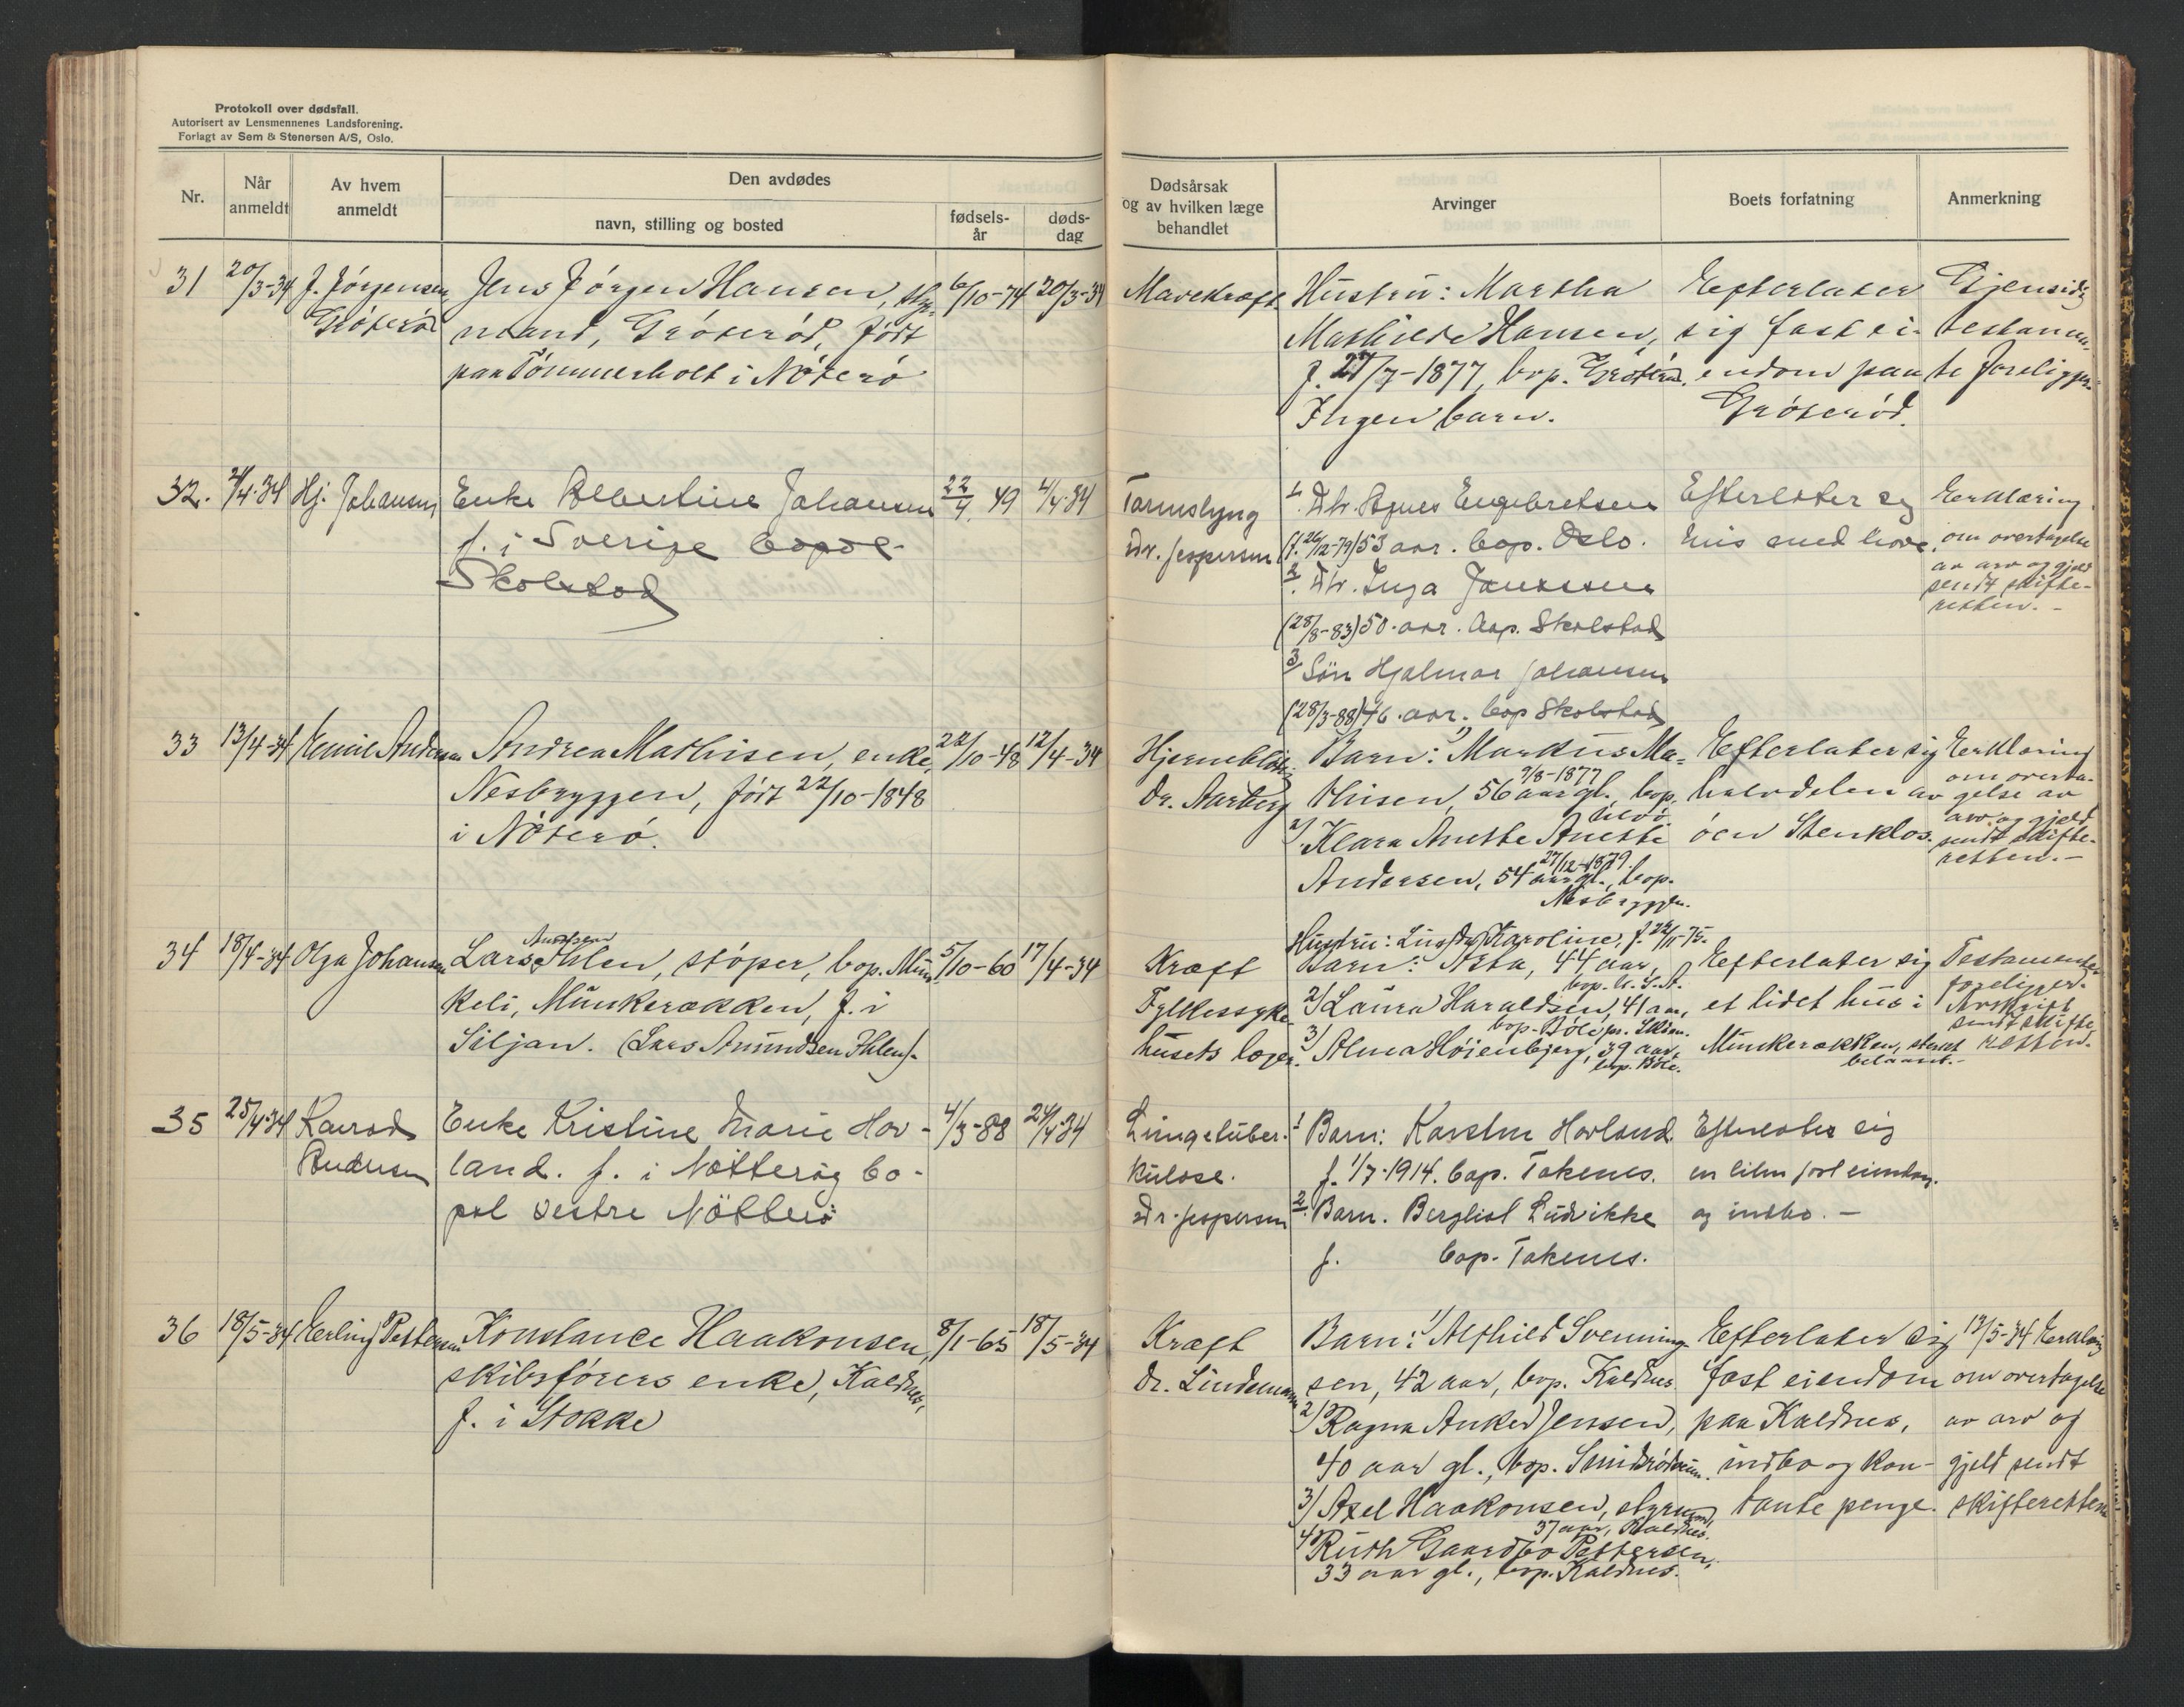 Protokoll over dødsfall.
Autorisert av Lensmennenes Landsforening.
Forlagt av Sem & Stenersen A/S, Oslo.
Nr.
Når anmeldt
Av hvem anmeldt
Den avdødes
navn, stilling og bosted
fødsels-år
døds-dag
Dødsårsak og av hvilken læge behandlet
Arvinger
Boets forfatning
Anmerkning
31 20/3-34 J. Jørgensen Jens Jørgen Hansen, 6/10-74 20/3-34 Mavekræft Hustru: Martha Efterlater Gjensidig
Grøterød mand, Grøterød, født Mathilde Hansen, sig fast ei- testamen-
paa Tømmerholt i Nøterø f. 27/7-1877, bop. Grøterød. endom paa te foreligger.
Ingen barn. Grøterød.
32. 4/4-34 Hj. Johansen Enke Albertine Johansen 22/4 49 4/4-34 Tarmslyng 1. Dtr. Agnes Engebretsen Efterlater sig Erklæring
f. i Sverige bopæl Dr. Jespersen (f. 26/12-79) 53 aar. bop. Oslo. hus med have. om overtagelse
Skolstad 2. Dtr. Inga av arv og gjeld
(28/8-83) 50 aar. bop. Skolstad sendt skifte-
3/ Søn Hjalmar Johansen retten.-
(28/3-88) 46 aar. bop Skolstad
33 13/4-34 Emil Andersen Andrea Mathisen, enke, 22/10-48 12/4-34 Barn: 1) Markus Ma- Efterlater sig Erklæring
Nesbryggen, født 22/10-1848 Dr. Aarberg thisen, 56 aar gl., bop. halvdelen av om overta-
7/8-1877 gelse av
i Nøterø. 2) Klara Anette øen Stenklos. arv og gjeld
27/12-1879. sendt skifte-
Andersen, 54 aar gl., bop. retten.-
Nesbryggen.
Hustru: Karoline, f. 22/11-75.
34 18/4-34 Olga Johansen Lars Ihlen, støper, bop. Mun- 5/10-60 17/4-34 Kræft Barn: 44 aar, Efterlater sig Testamente
bop. U.S.A. foreligger.
keli, Munkerækken, f. i Fylkessyke- 2) Laura Haraldsen, 41 aar, et lidet hus i Avskrift
bop. Bøle pr. Skien. sendt skifte-
Siljan. (Lars Amundsen Ihlen). husets læger. 3) Alma Høienbjerg, 39 aar, Munkerækken, sterkt retten.
bop. Bøle. belaant.-
35 25/4-34 Konrad Enke Kristine Marie Hov- 4/3-88 24/4-34 Lungetuber- 1 Barn: Karsten Hovland. Efterlater sig
Andersen land. f. i Nøtterøy bo- kulose. f. 1/7-1914. bop. Tokenes. en liten fast eiendom.
pæl vestre Nøtterø Dr. Jespersen 2. Barn. Bergliot Ludvikke og indbo.-
f. bop. Tokenes.
36 18/5-34 Erling Pettersen Konstance Haakonsen, 8/1-65 18/5-34 Kræft Barn: 1/ Alfhild Svenning- Efterlater sig Erklæring
skibsførers enke, Kaldnes, Dr. Lindemann sen, 42 aar, bop. Kaldnes. fast eiendom om overtagelse
f. i Stokke 2) Ragna Anker Jensen, paa Kaldnes, av arv og
40 aar gl., bop. indbo og kon- gjeld sendt
3/ Axel Haakonsen, styrmand, tante penge. skifteretten
37 aar, Kaldnes.
4/ Ruth Gaardbo Pettersen,
33 aar gl., bop. Kaldnes.